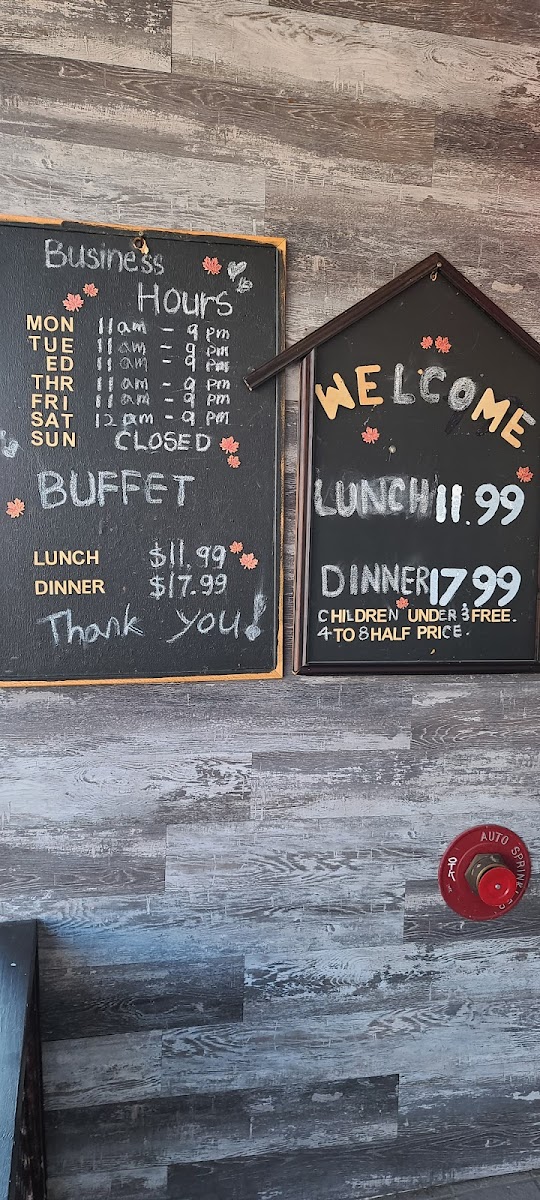 Business
Hours
MON 11am - 9pm
TUE 11am - 9pm
ED 11am - 9pm
THR 11am - 9pm
FRI 11am - 9pm
SAT 12am - 9pm
SUN CLOSED
BUFFET
LUNCH $11.99
DINNER $17.99
Thank you!
WELCOME
LUNCH 11.99
DINNER 17.99
CHILDREN UNDER 3 FREE.
4 TO 8 HALF PRICE.
AUTO SPRINKLER